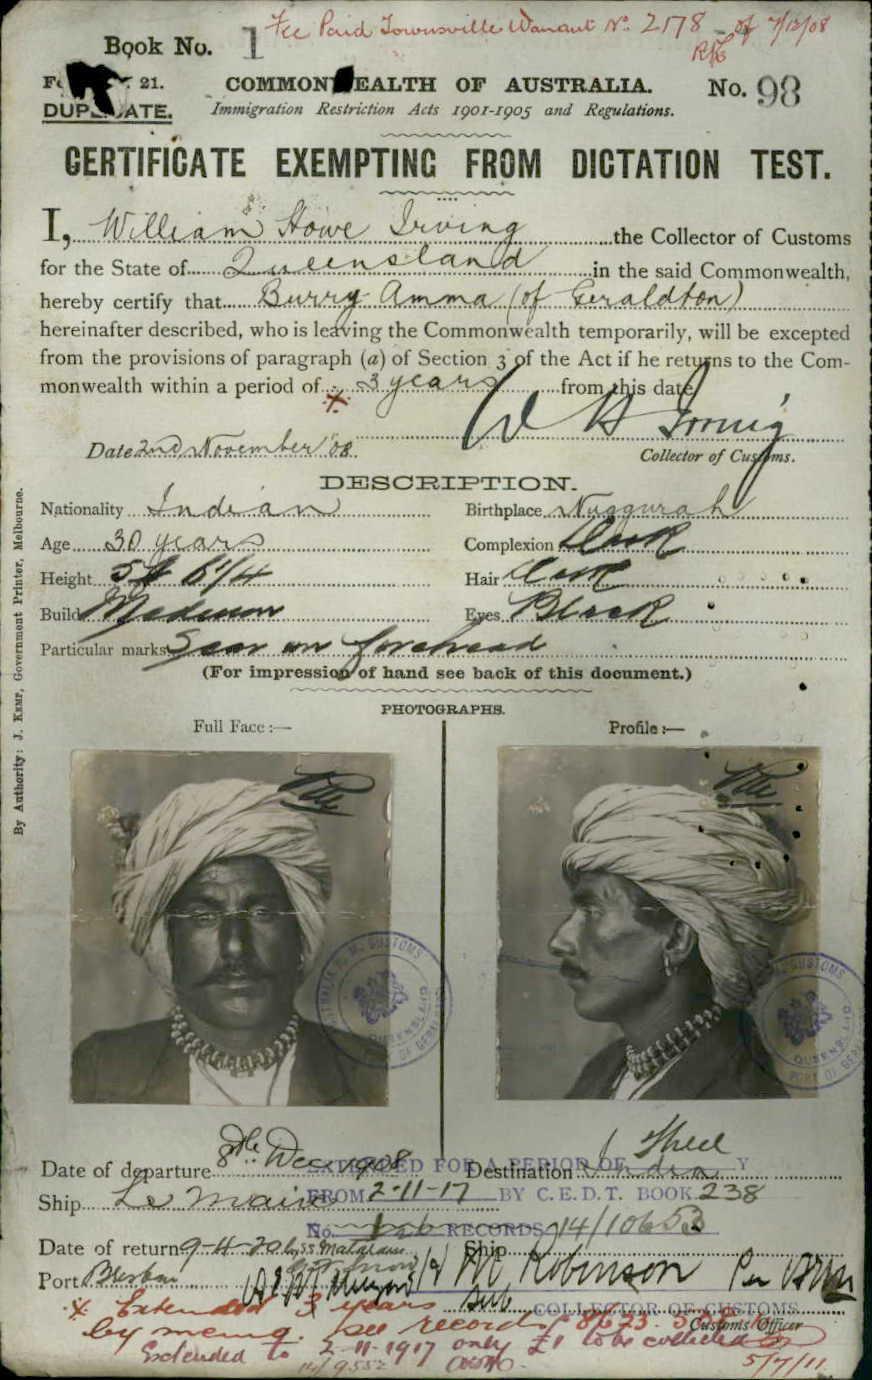 Fee Paid Townsville Warrant No. 2178 of 7/12/08
Book No. 1
21.
COMMONWEALTH OF AUSTRALIA. No. 98
DUPLICATE. Immigration Restriction Acts 1901-1905 and Regulations.
CERTIFICATE EXEMPTING FROM DICTATION TEST.
I, William Howe Irving the Collector of Customs
for the State of Queensland in the said Commonwealth,
hereby certify that Burry Amma (of Geraldton)
hereinafter described, who is leaving the Commonwealth temporarily, will be excepted
from the provisions of paragraph (a) of Section 3 of the Act if he returns to the Com-
monwealth within a period of 3 years from this date
W H Irving
Date 2nd November '08. Collector of Customs.
DESCRIPTION.
Nationality Indian Birthplace Nuggurah
Age 30 years Complexion Dark
Height 5ft 6 1/4 Hair Dark
Build Medium Eyes Black
Particular marks Scar on forehead
(For impression of hand see back of this document.)
PHOTOGRAPHS.
Full Face :— Profile :—
By Authority: J. KEMP, Government Printer, Melbourne.
CUSTOMS QUEENSLAND
CUSTOMS QUEENSLAND PORT OF
Date of departure 8th Dec 1908 Destination India
EXTENDED FOR A PERIOD OF Three Y
Ship Le Maire
FROM 2-11-17 BY C.E.D.T. BOOK 238
No. RECORDS 14/10653
Date of return 9-4-20 by S.S. Mataram Ship
Port Brisbane H M Robinson Per
Sub COLLECTOR OF CUSTOMS
Customs Officer
x Extended 3 years
by memo. see records
Extended to 2-11-1917 only £1 to be collected
14/9552 5/7/11